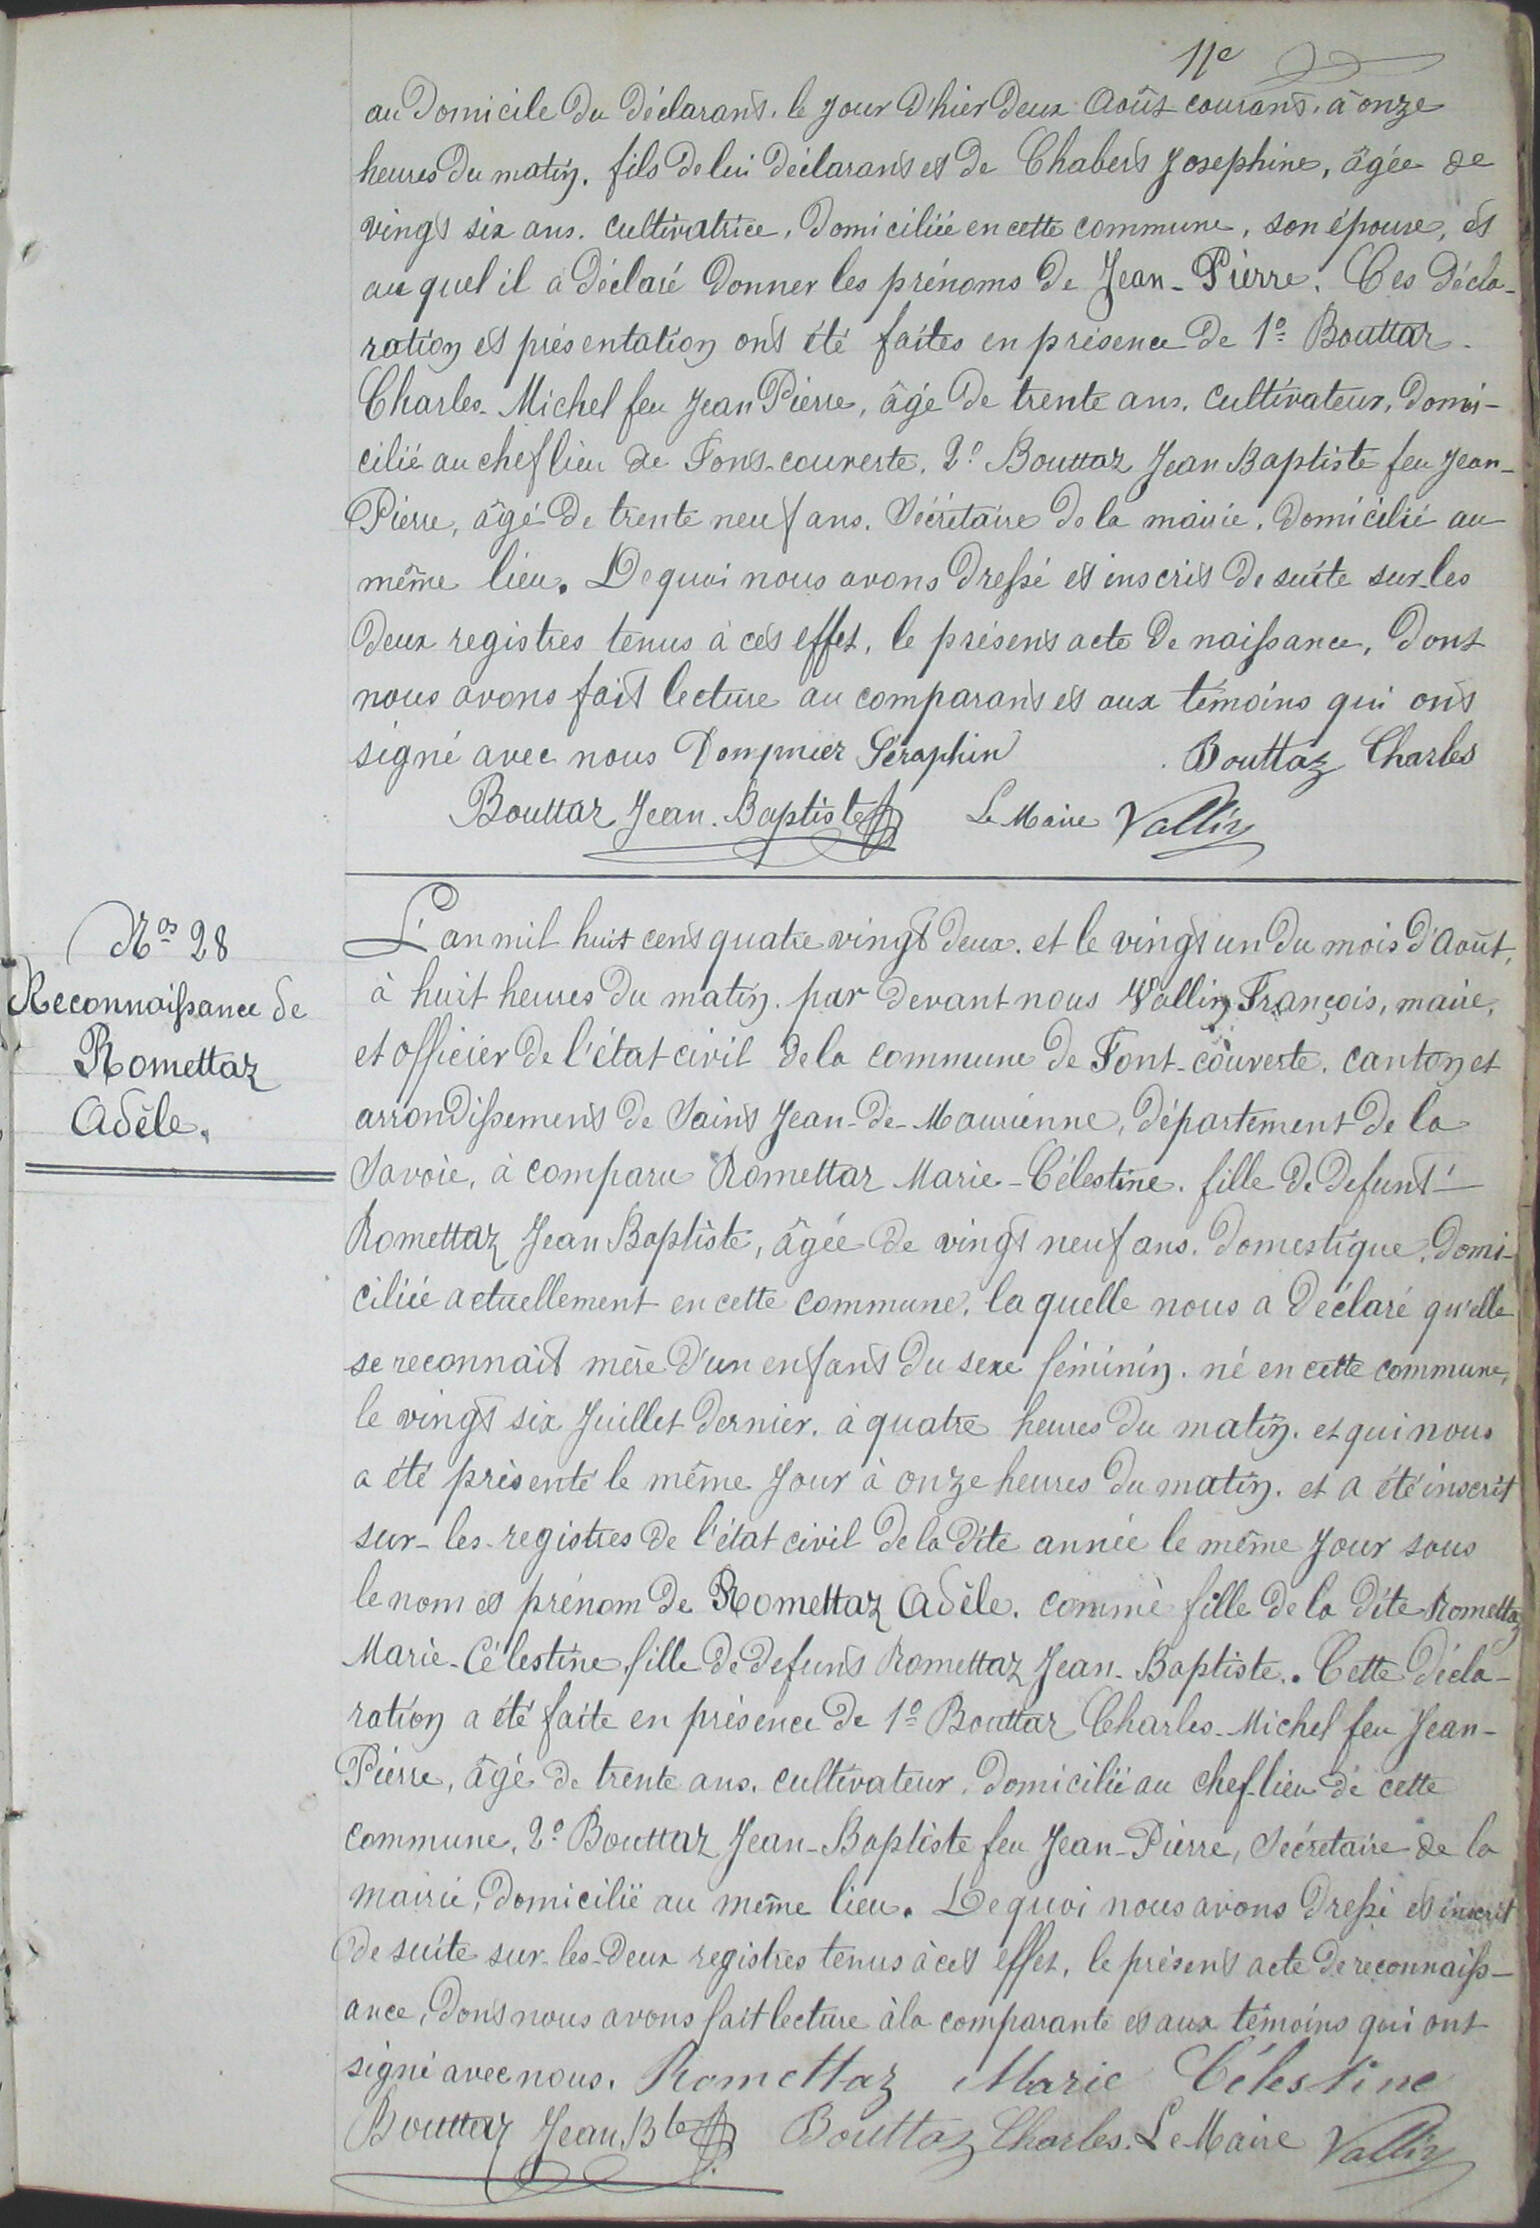 11e
au Domicile du déclarant, le jour d'hier deux Août courant, à onze
heures du matin, fils de lui déclarant et de Chabert Josephine, âgée de
vingt six ans, cultivatrice, domiciliée en cette commune, son épouse, et
au quel il a déclaré donner les prénoms de Jean-Pierre. Ces décla-
ration et présentation ont été faites en présence de 1º Bouttaz
Charles-Michel feu Jean Pierre, âgé de trente ans, cultivateur, domi-
cilié au chef lieu de Font-couverte, 2º Bouttaz Jean Baptiste feu Jean-
Pierre, âgé de trente neuf ans, Sécrétaire de la mairie, domicilié au
même lieu. De quoi nous avons dressé et inscrit de suite sur-les
deux registres tenus à cet effet, le présent acte de naissance, dont
nous avons fait lecture au comparant et aux témoins qui ont
signé avec nous Dompnier Séraphin Bouttaz Charles
Bouttaz Jean-Baptiste Le Maire Vallin
Nos 28
Reconnaissance de
Romettaz
Adèle.
L'an mil huit cent quatre vingt deux, et le vingt un du mois d'Août,
à huit heures du matin, par devant nous Vallin François, maire,
et officier de l'état civil de la commune de Font-couverte, canton et
arrondissement de Saint Jean-de-Maurienne, département de la
Savoie, à comparu Romettaz Marie-Célestine, fille de defunt
Romettaz Jean Baptiste, âgée de vingt neuf ans, domestique, domi-
ciliée actuellement en cette commune, la quelle nous a déclaré qu'elle
se reconnait mère d'un enfant du sexe féminin, né en cette commune,
le vingt six Juillet dernier, à quatre heures du matin, et qui nous
a été présenté le même jour à onze heures du matin, et a été inscrit
sur-les-registres de l'état civil de la dite année le même jour sous
le nom et prénom de Romettaz Adèle, comme fille de la dite Romettaz
Marie-Célestine fille de defunt Romettaz Jean-Baptiste. Cette décla-
ration a été faite en présence de 1º Bouttaz Charles-Michel feu Jean-
Pierre, âgé de trente ans, cultivateur, domicilié au chef-lieu de cette
commune, 2º Bouttaz Jean-Baptiste feu Jean-Pierre, Sécrétaire de la
mairie, domicilié au même lieu. De quoi nous avons dressé et inscrit
de suite sur-les-deux registres tenus à cet effet, le présent acte de reconnaiss-
ance, dont nous avons fait lecture à la comparante et aux témoins qui ont
signé avec nous. Romettaz Marie Célestine
Bouttaz Jean Bte Bouttaz Charles. Le Maire Vallin